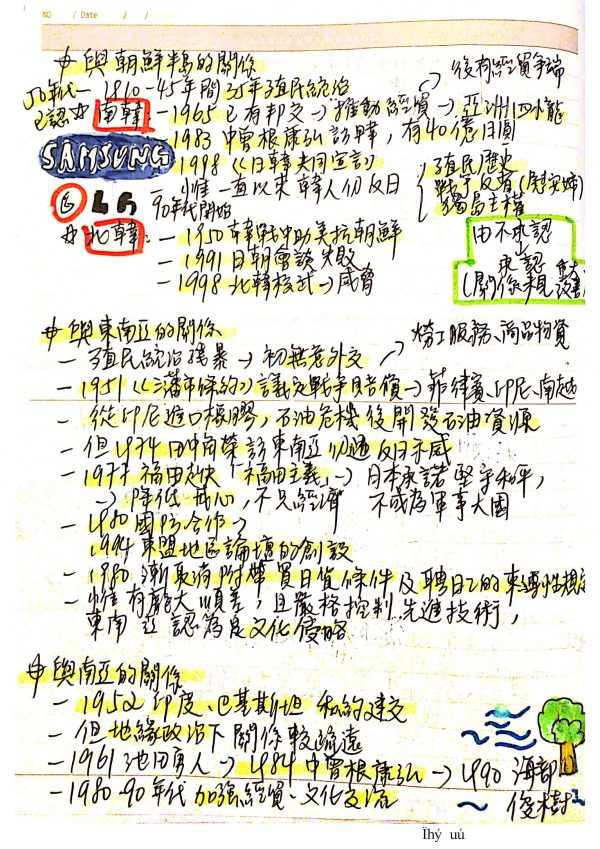 NO / Date / /
與朝鮮半島的關係
1910-45年間35年殖民統治
後有經貿爭端
南韓: - 1965 已有邦交 → 推動經貿 → 亞洲四小龍
- 1983 中曾根康弘訪韓, 有40億日圓
SAMSUNG
- 1998《日韓共同宣言》
- 惟一直以來韓人仍反日
殖民歷史
戰爭反省(慰安婦)
獨島主權
LG
90年代開始
北韓: - 1950 韓戰中助美抗朝鮮
- 1991 日朝會談失敗
- 1998 北韓核試 → 威脅
由不承認
承認
(關係親
與東南亞的關係
- 殖民統治殘暴 → 初無意外交
勞工服務、商品物資
- 1951《三藩市條約》議定戰爭賠償 → 菲律賓、印尼、南越
- 從印尼進口橡膠, 石油危機後開發石油資源
- 但1974 田中角榮訪東南亞仍遇反日示威
- 1977 福田赳夫「福田主義」→ 日本承諾堅守和平,
不只經濟 不成為軍事大國
- 1980 國防合作
1994 東盟地區論壇的創設
- 1980 漸取消附帶買日貨條件及聘自己的
- 惟有龐大順差, 且嚴格控制先進技術,
東南亞認為是文化侵略
與南亞的關係
- 1952 印度、巴基斯坦 和約建交
- 但地緣政治下關係較疏遠
- 1961 池田勇人 → 1984 中曾根康弘 → 1990 海部
俊樹
- 1980-90年代加強經貿、文化交流